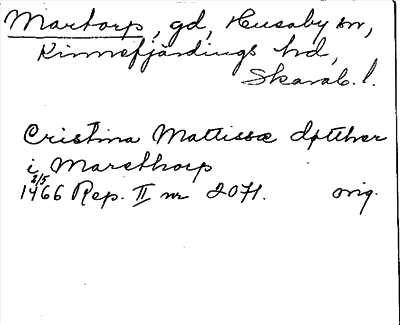 Martorp, gd, Husaby sn,
Kinnefjärdings hd,
Skarab. l.
Cristina Mattissæ dptther
i Marethorp
2/5
1466 Rep. II nr 2071. orig.